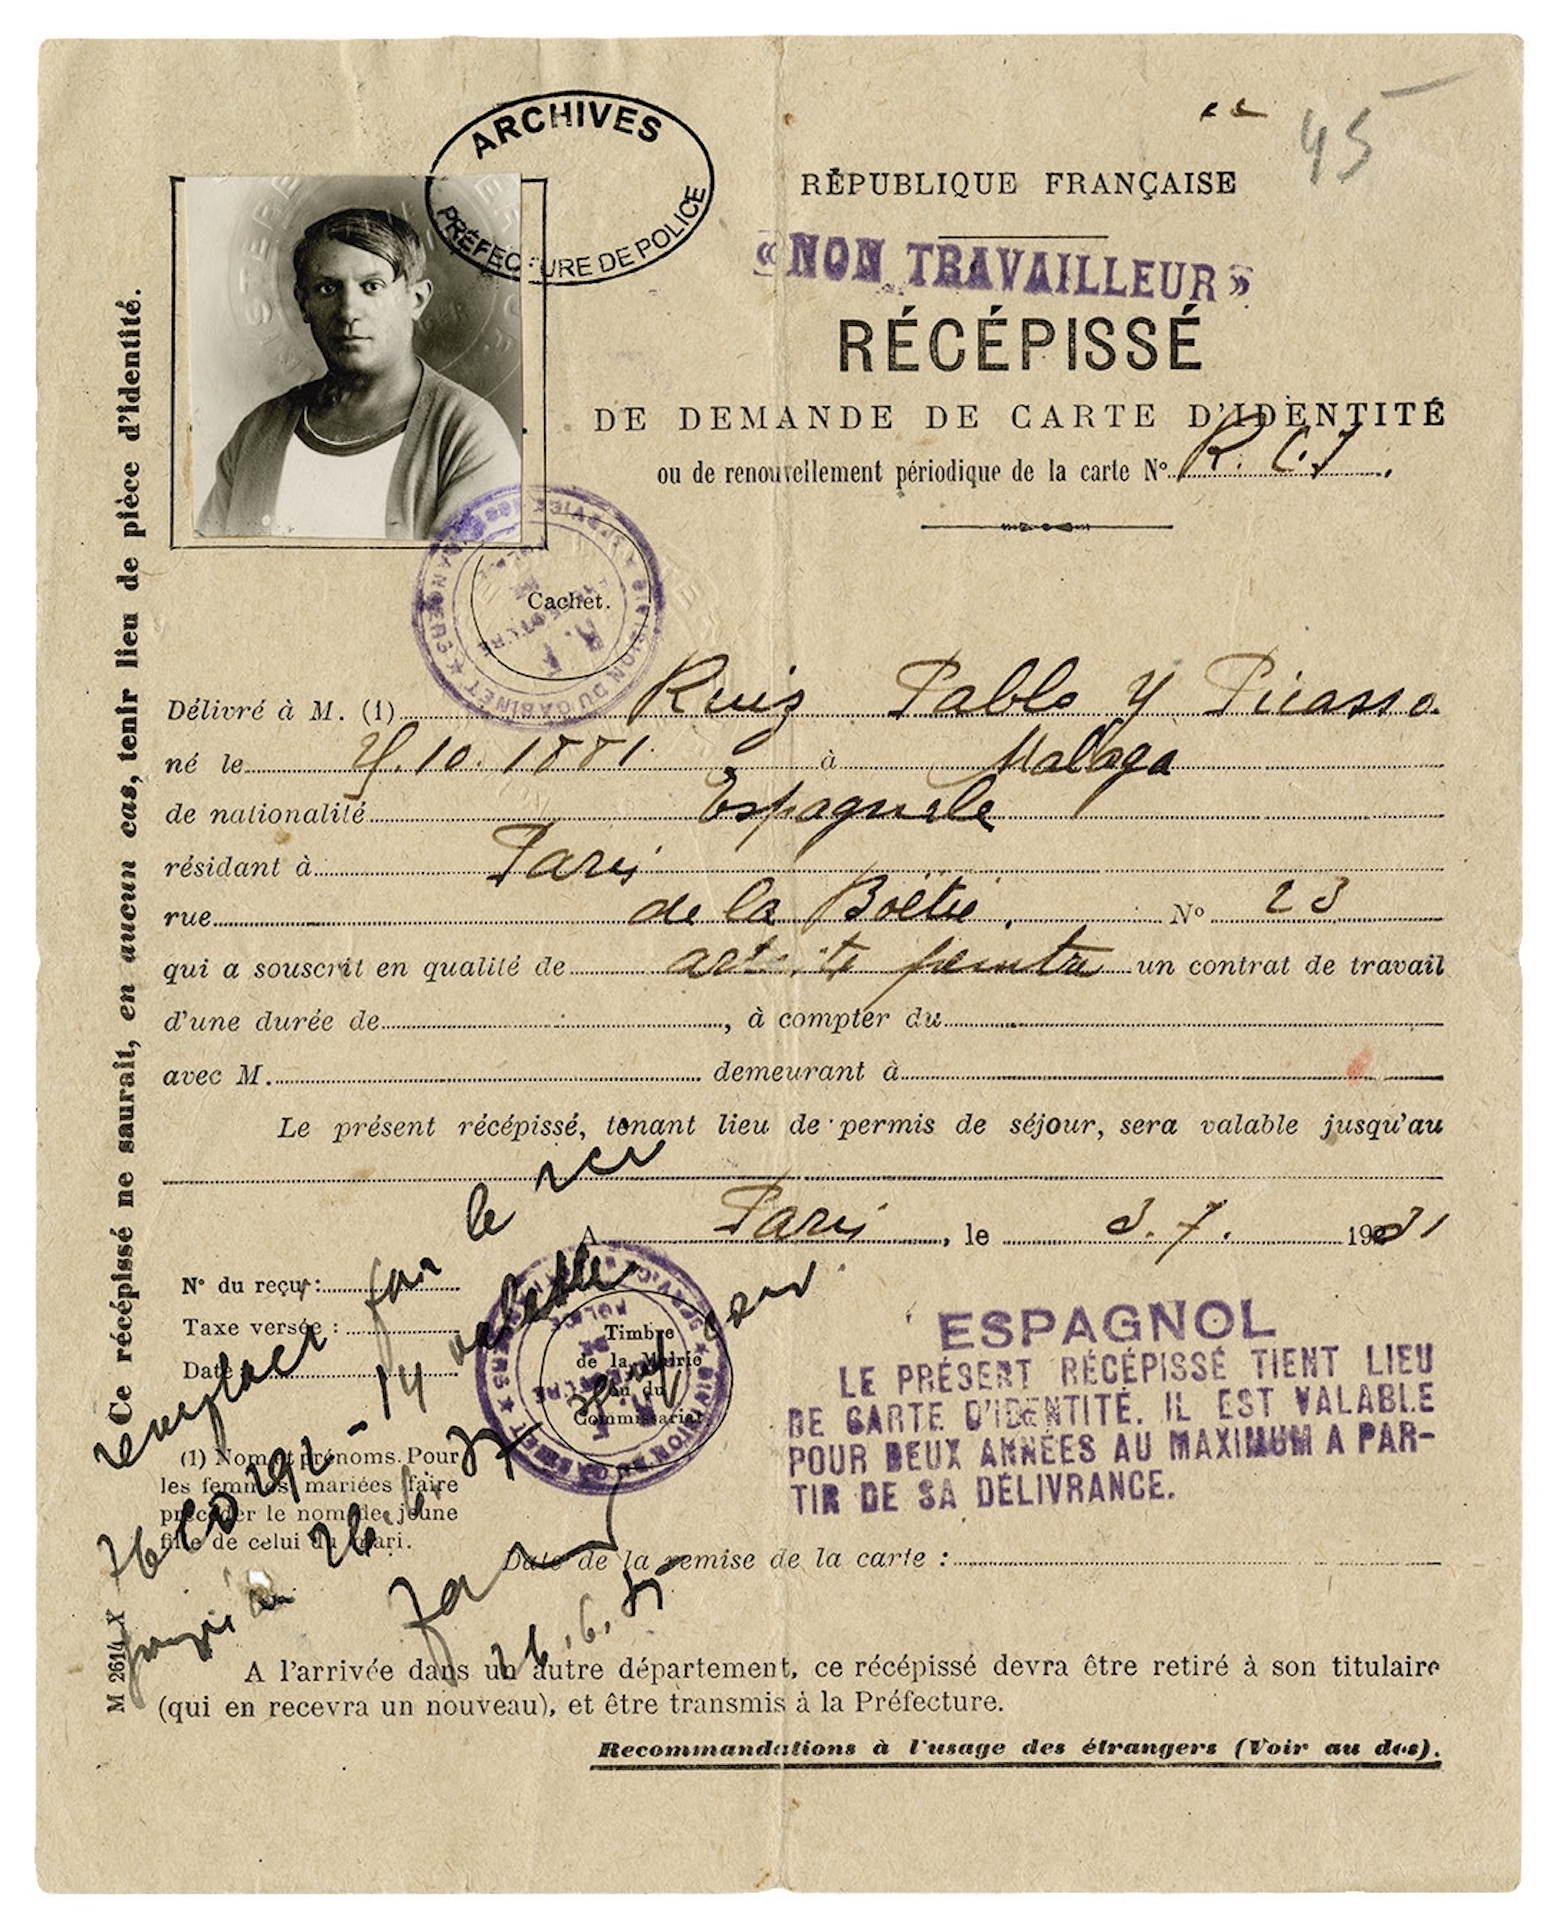 45
ARCHIVES
PRÉFECTURE DE POLICE
RÉPUBLIQUE FRANÇAISE
« NON TRAVAILLEUR »
RÉCÉPISSÉ
DE DEMANDE DE CARTE D'IDENTITÉ
ou de renouvellement périodique de la carte No R.C.I.
Cachet.
DIVISION DU CABINET
Délivré à M. (1) Ruiz Pablo y Picasso
né le 25.10.1881 à Malaga
de nationalité Espagnole
résidant à Paris
rue de la Boëtie. No 23
qui a souscrit en qualité de artiste peintre un contrat de travail
d'une durée de , à compter du
avec M. demeurant à
Le présent récépissé, tenant lieu de permis de séjour, sera valable jusqu'au
A Paris, le 3.7. 1931
No du reçu :
Taxe versée :
Date
remplacé par le rec
valable
Timbre
de la Mairie
ou du
Commissariat
DIVISION DU CABINET
ESPAGNOL
LE PRÉSENT RÉCÉPISSÉ TIENT LIEU
DE CARTE D'IDENTITÉ. IL EST VALABLE
POUR DEUX ANNÉES AU MAXIMUM A PAR-
TIR DE SA DÉLIVRANCE.
(1) Nom et prénoms. Pour
les femmes mariées faire
précéder le nom de jeune
fille de celui du mari.
Date de la remise de la carte :
A l'arrivée dans un autre département, ce récépissé devra être retiré à son titulaire
(qui en recevra un nouveau), et être transmis à la Préfecture.
Recommandations à l'usage des étrangers (Voir au dos).
Ce récépissé ne saurait, en aucun cas, tenir lieu de pièce d'identité.
M 2614 X